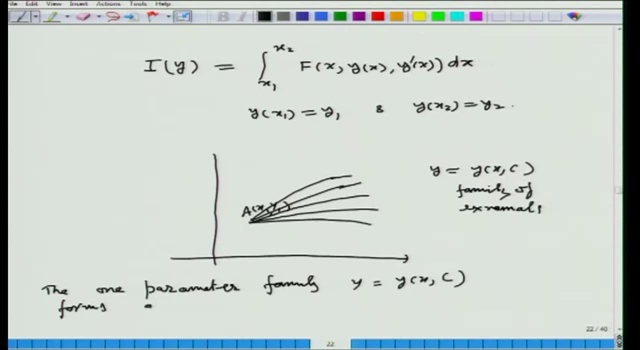 File Edit View Insert Actions Tools Help
I(y) = ∫_{x₁}^{x₂} F(x, y(x), y'(x)) dx
y(x₁) = y₁ & y(x₂) = y₂.
y = y(x, C)
family of
exremals
A(x₁, y₁)
The one parameter family y = y(x, C)
forms
22 / 40
22